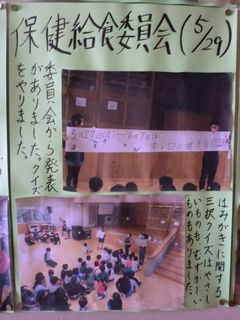 保健給食委員会(5/29)
委員会から発表
がありました。クイズ
をやりました。
5月27日(月)〜6月7日(金)
はみがきに関する
三択クイズはやさし
いものもむずかしい
ものもありました。